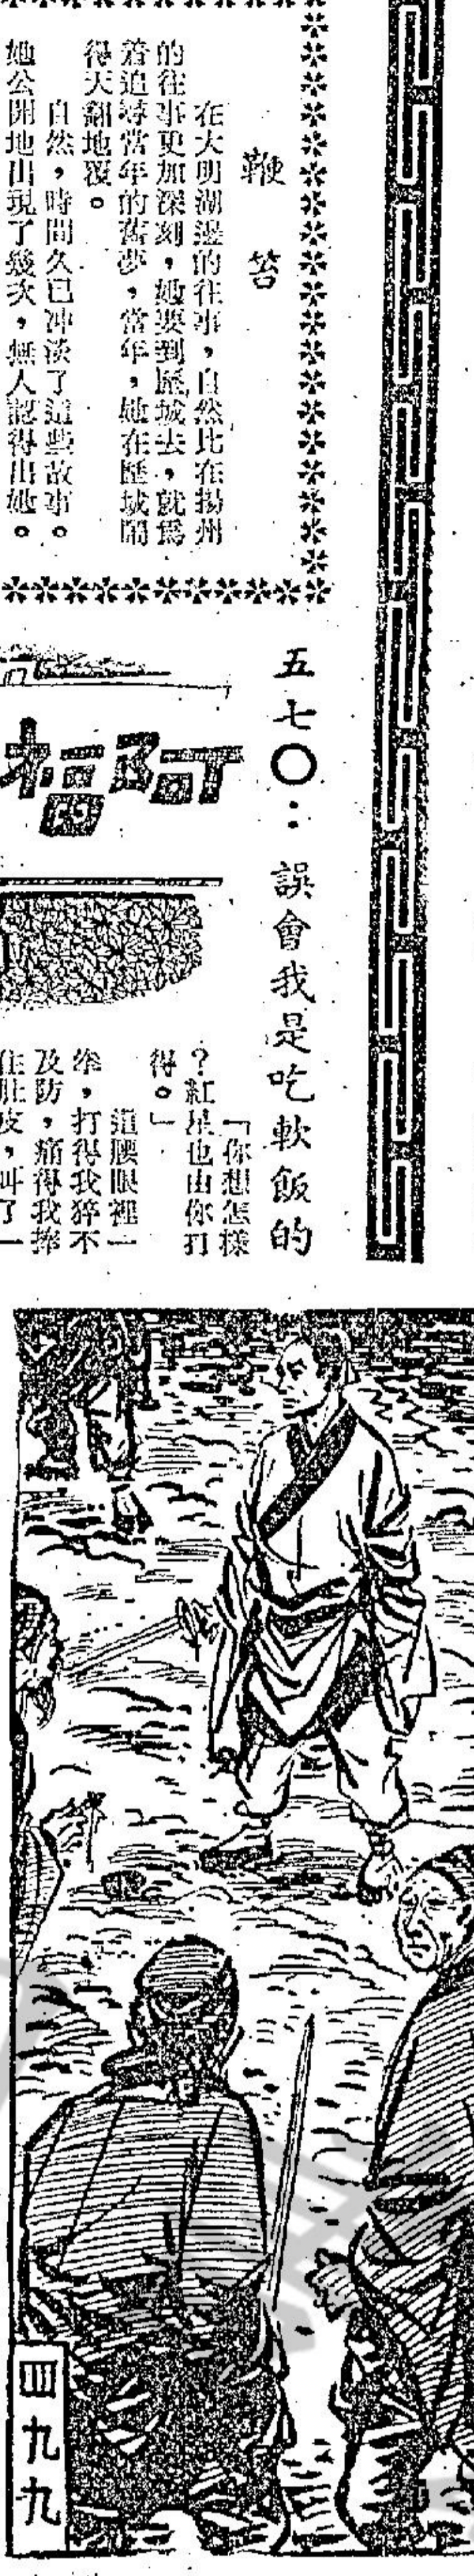 鞭笞
在大明湖邊的往事，自然比在揚州
的往事更加深刻，她要到歷城去，就爲
着追尋當年的舊夢，當年，她在歷城鬧
得天翻地覆。
自然，時間久已冲淡了這些故事。
她公開地出現了幾次，無人認得出她。
五七〇：誤會我是吃軟飯的
阿福
「你想怎樣
？紅星也由你打
得。」
這腰眼裡一
拳，打得我猝不
及防，痛得我捧
住肚皮，叫了一
四九九